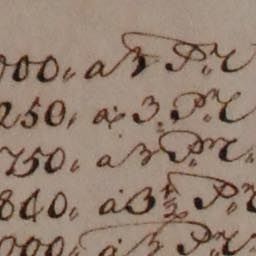 000, a 3 P.r C
250, a 3 P.r C
750, a 3 P.r C
840, a 3 1/2 P.r
000, a 3 P.r C